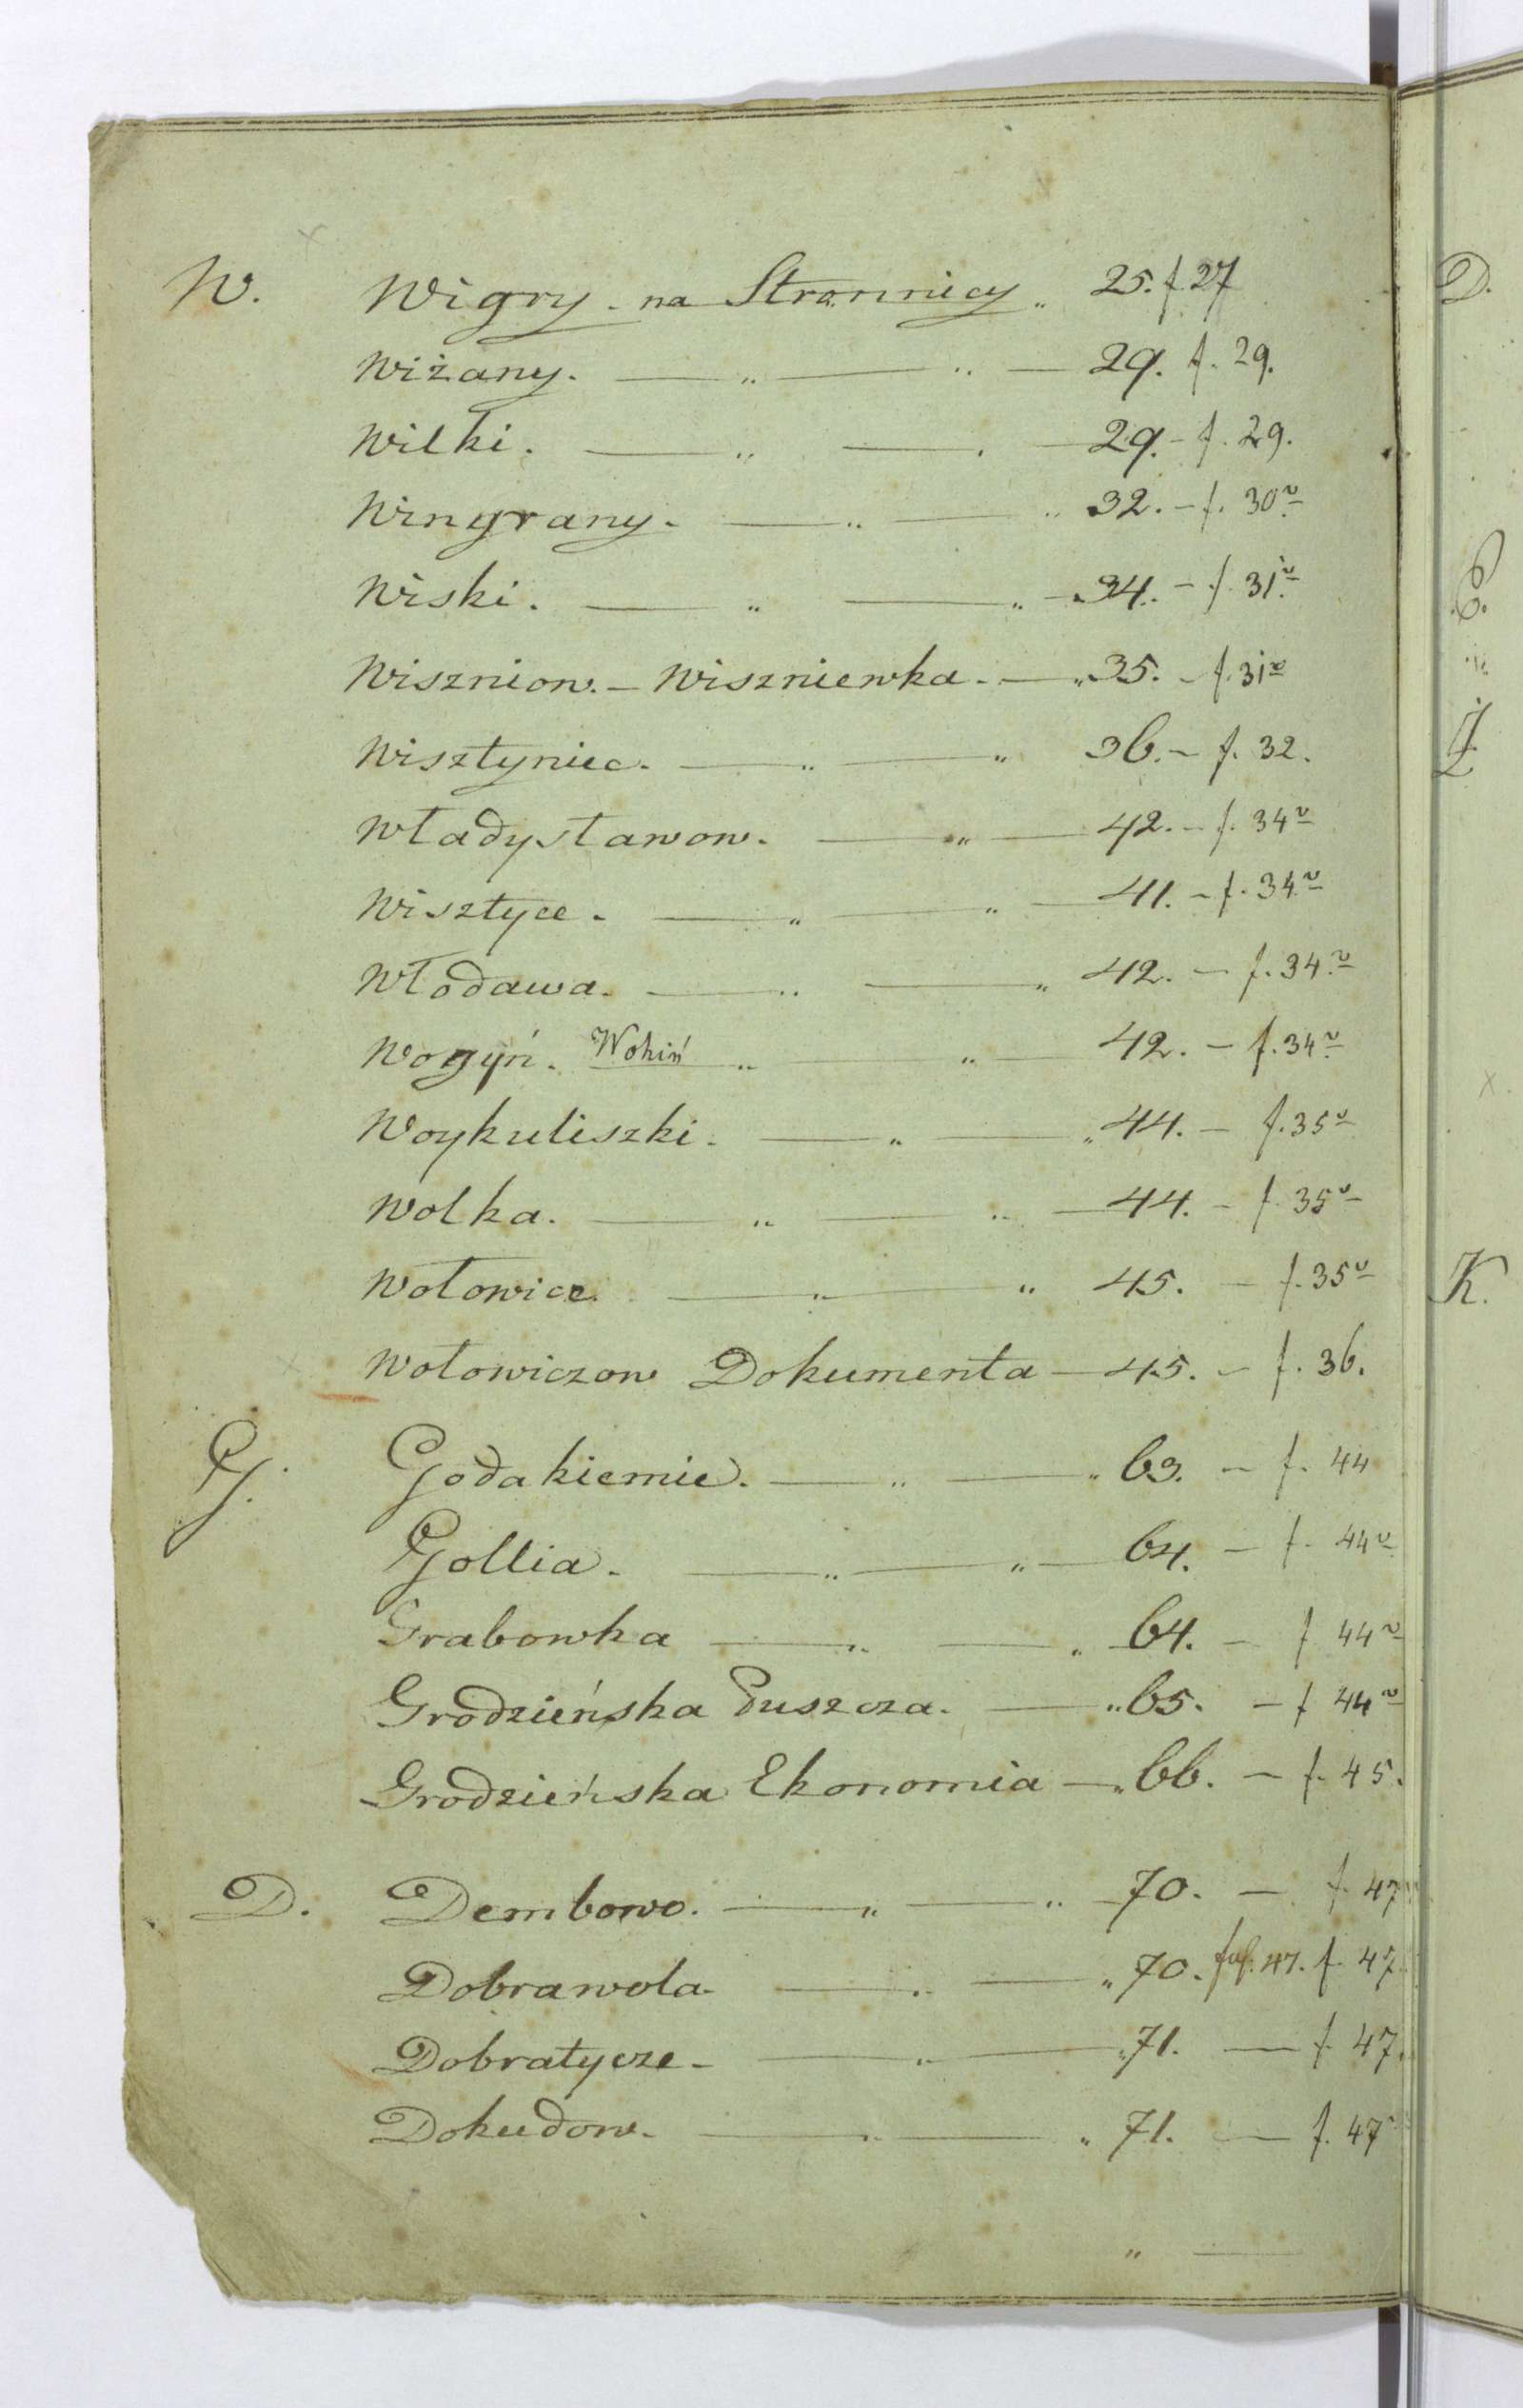 W. Wigry - na Stronnicy „ 25. f 27
Wiżany. — „ — „ — 29. f. 29.
Wilki. — „ — . — 29. - f. 29.
Wingrany. — „ — „ 32. - f. 30v
Wiski. — „ — „ - 34. - f. 31v
Wiszniow. - Wiszniewka. - — „ 35. - f. 31v
Wisztyniec. — „ — „ 36. - f. 32.
Władysławow. — „ — 42. - f. 34v
Wisztyce. — „ — „ — 41. - f. 34v
Włodawa. — „ — „ 42. — f. 34v
Wogyń. Wohiń „ — „ — 42. — f. 34v
Woykuliszki. — „ — „ 44. — f. 35v
Wolka. — „ — „ — 44. - f. 35v
Wołowicz. — „ — „ 45. — f. 35v
Wołowiczow Dokumenta — 45. - f. 36.
G. Godakiemie. — „ — „ 63. - f. 44
Gollia. — „ — „ — 64. — f. 44v
Grabowka — „ — „ 64. — f 44v
Grodzieńska Puszcza. — „ 65. — f 44v
Grodzieńska Ekonomia — „ 66. — f. 45.
D. Dembowo. — „ — „ — 70. — f. 47
Dobrawola. — „ — „ 70. f. 47
Dobratycze. — „ — „ 71. — f. 47.
Dokudow. — „ — „ 71. — f. 47
„ —
D.
K.